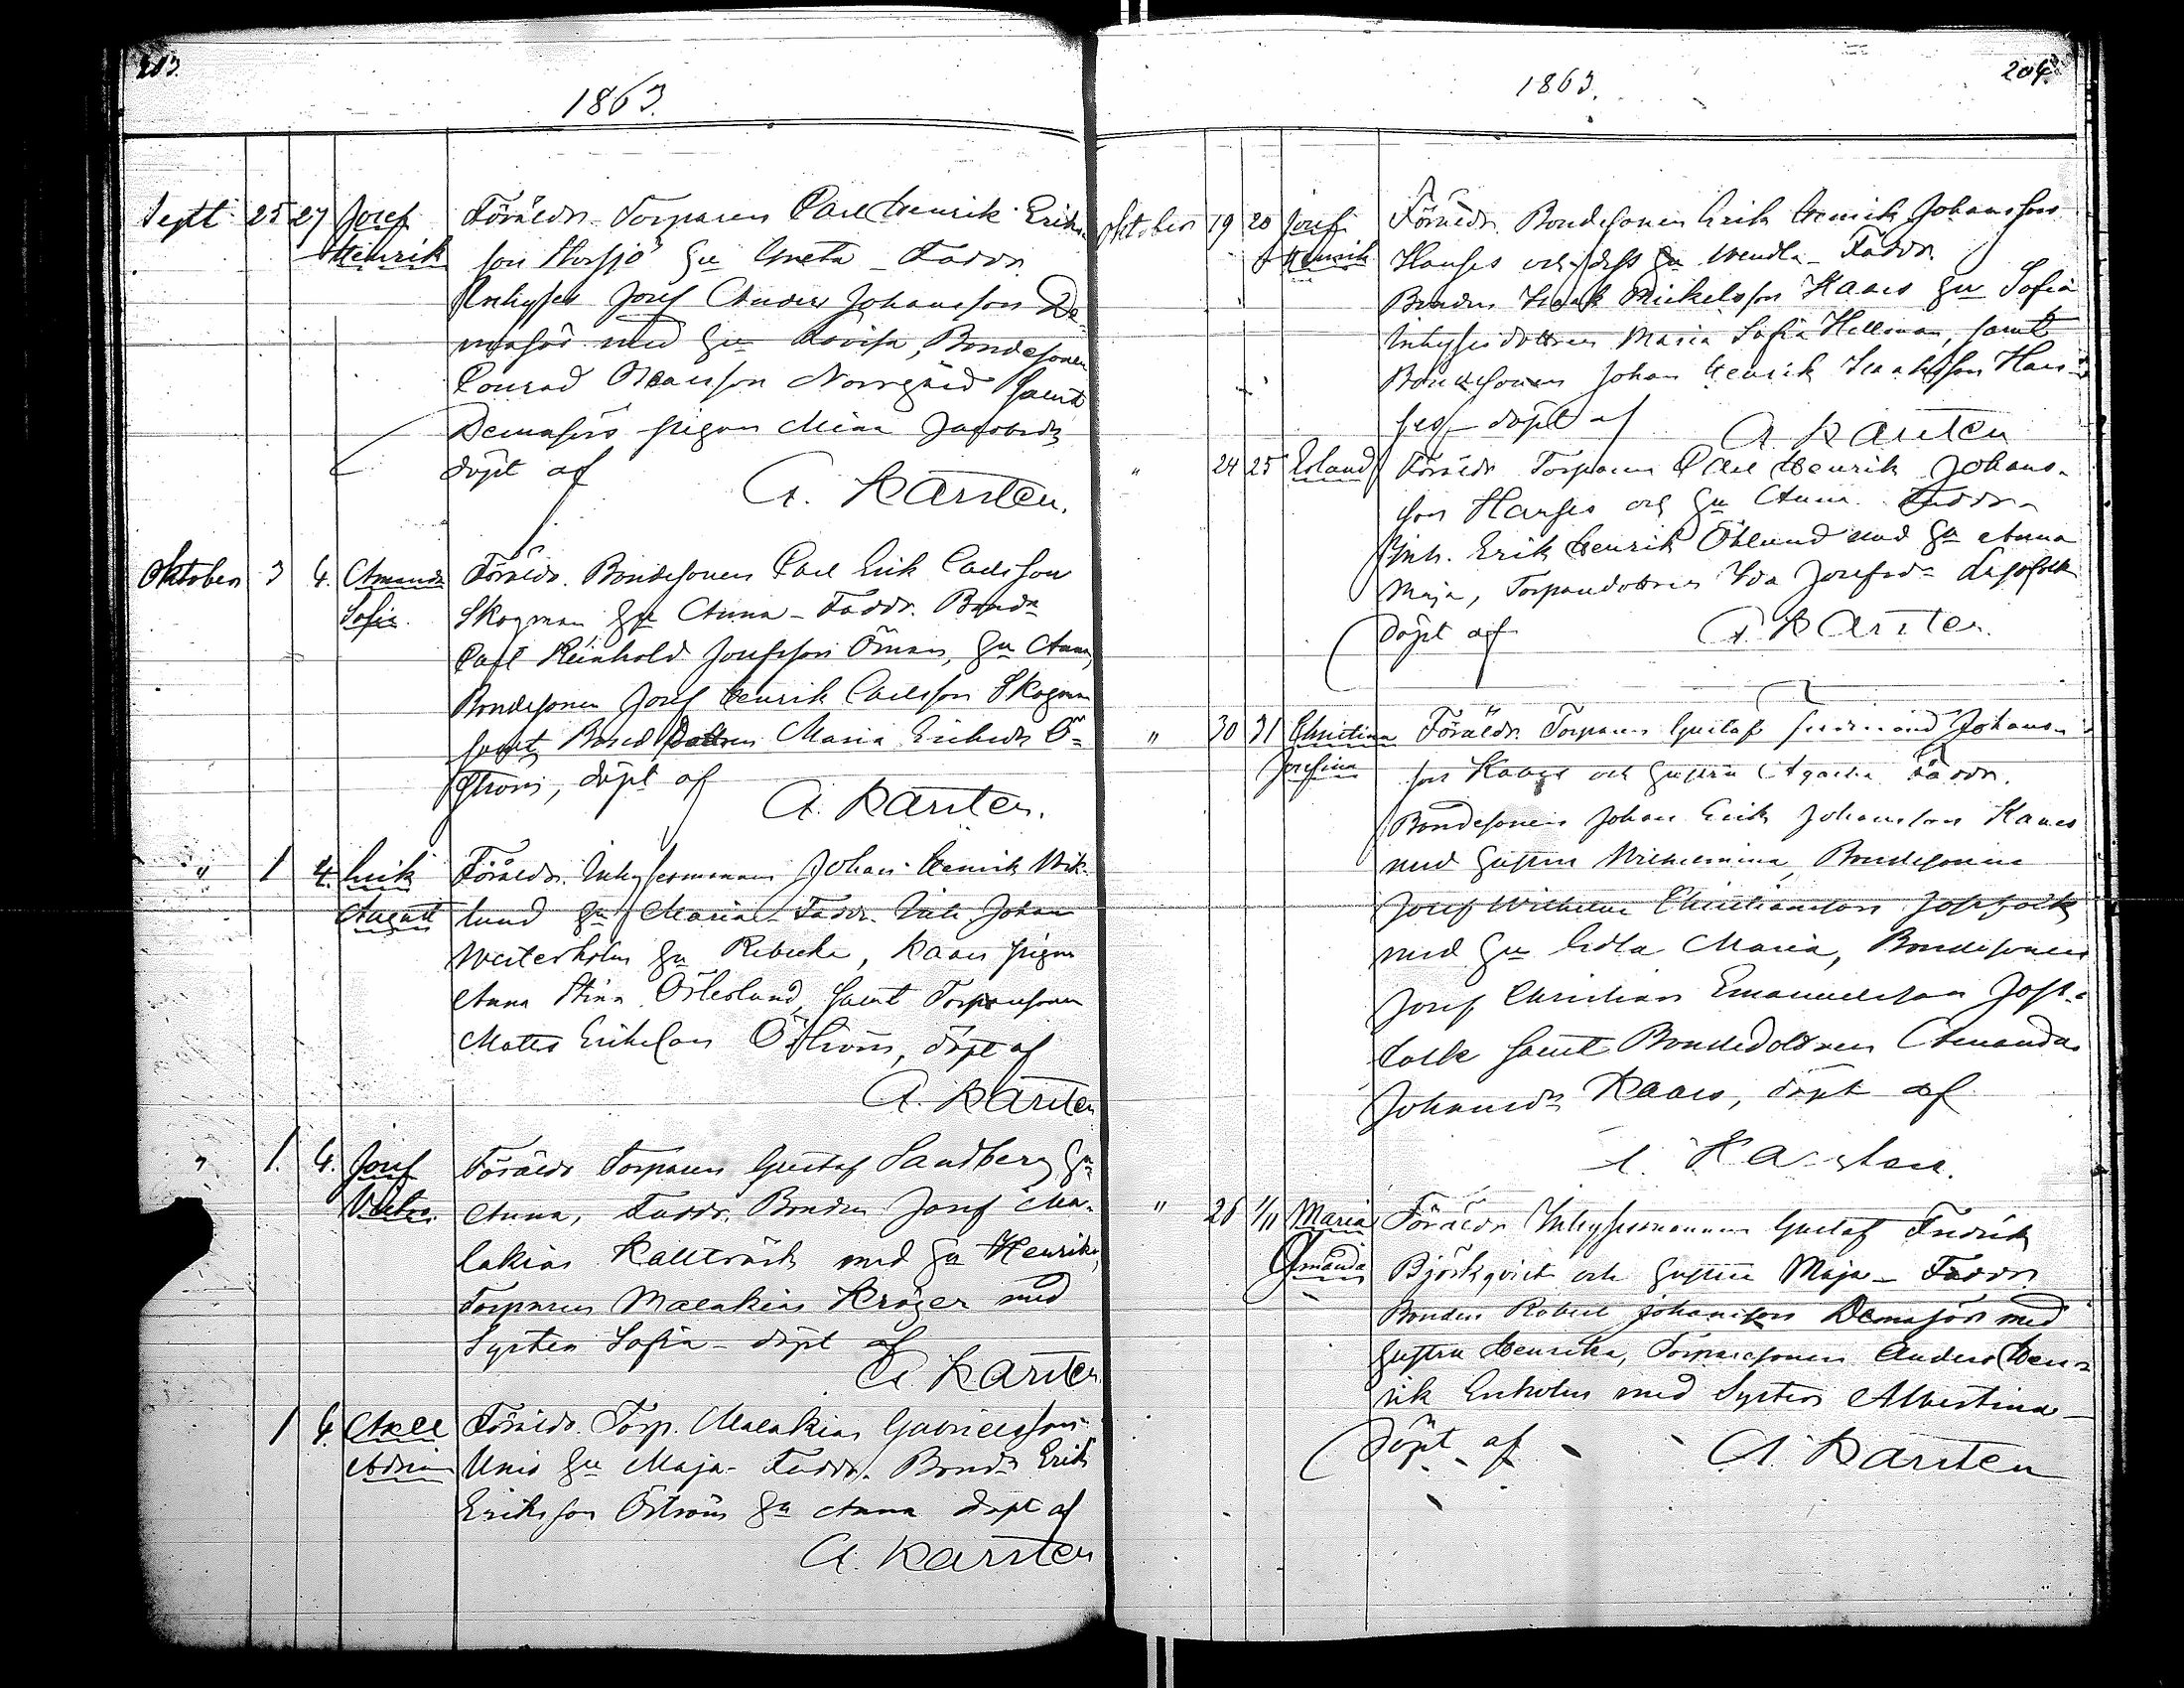 203.
1863.
Sept 25 27 Josef Föräldr. Torparen Carl Henrik Eriks-
Henrik son Storsjö Hu Greta - Faddr.
Inhyses Josef Anders Johansson De-
masör med Hu Lovisa, Bondesonen
Conrad Norrgård samt
Demasörs pigan Mina Jacobsdr
döpt af
A. Karsten.
Oktober 3 4. Amanda Föräldr. Bondesonen Carl Erik Carlsson
Sofia. Skogman Hu Anna - Faddr. Bondn
Carl Reinhold Josefsson Öman, Hu Anna
Bondesonen Josef Henrik Carlsson Skogman
samt Bondedottren Maria Eriksdr Ö-
ström, döpt af
A. Karsten.
" 1 4. Erik Föräldr. Inhysesmannen Johan Henrik Wik-
August lund Hu Maria - Faddr. Johan
Westerholm Hu Rebecka, Kaars pigan
Anna Stina Österlund, samt Torparesonen
Matts Eriksson Öström, döpt af
A. Karsten
" 1. 4. Josef Föräldr Torparen Gustaf Sandberg Hu
Victor. Anna, Faddr. Bonden Josef Ma-
lakias Kallträsk med Hu Henrika,
Torparen Malakias Kröger med
Syster Sofia - döpt af
A. Karsten
1 4. Axel Föräldr. Torp. Malakias Gabrielsson
Adrian Hu Maja - Faddr. Bondn Erik
Eriksson Öström Hu Anna döpt af
A. Karsten
204.
1863.
Oktober 19 20 Josef Föräldr. Bondesonen Erik Henrik Johansson
Henrik Hanses och dess Hu Wendla - Faddr.
Bonden Isaak Mickelsson Kaars Hu Sofia
Inhysesdottren Maria Sofia Hellman, samt
Bondesonen Johan Henrik Isaksson Han-
ses - döpt af A. Karsten
" 24 25 Erland Föräldr Torparen Carl Henrik Johans-
son Hanses och Hu Anna. Faddr.
Inh. Erik Henrik Öhlund med Hu Anna
Maja, Torparedottren Ida Josefsdr
döpt af A. Karsten.
" 30 31 Christina Föräldr. Torparen Gustaf Ferdinand Johans-
Josefina son Kaars och Hustru Agatha Faddr.
Bondesonen Johan Erik Johansson Kaars
med Hustru Wilhelmina, Bondesonen
Josef Wilhelm Christiansson Jossfolk
med Hu Edla Maria, Bondesonen
Josef Christian Emanuelsson Joss-
folk samt Bondedottren Amanda
Johansdr Kaars, döpt af
A. Karsten.
" 26 1/11 Maria Föräldr Inhysesmannen Gustaf Fredrik
Amanda Björkqvist och Hustru Maja - Faddr
Bonden Robert Johansson Demasör med
Hustru Henrika, Torparesonen Anders Hen-
rik Enholm med Syster Albertina -
döpt af A. Karsten